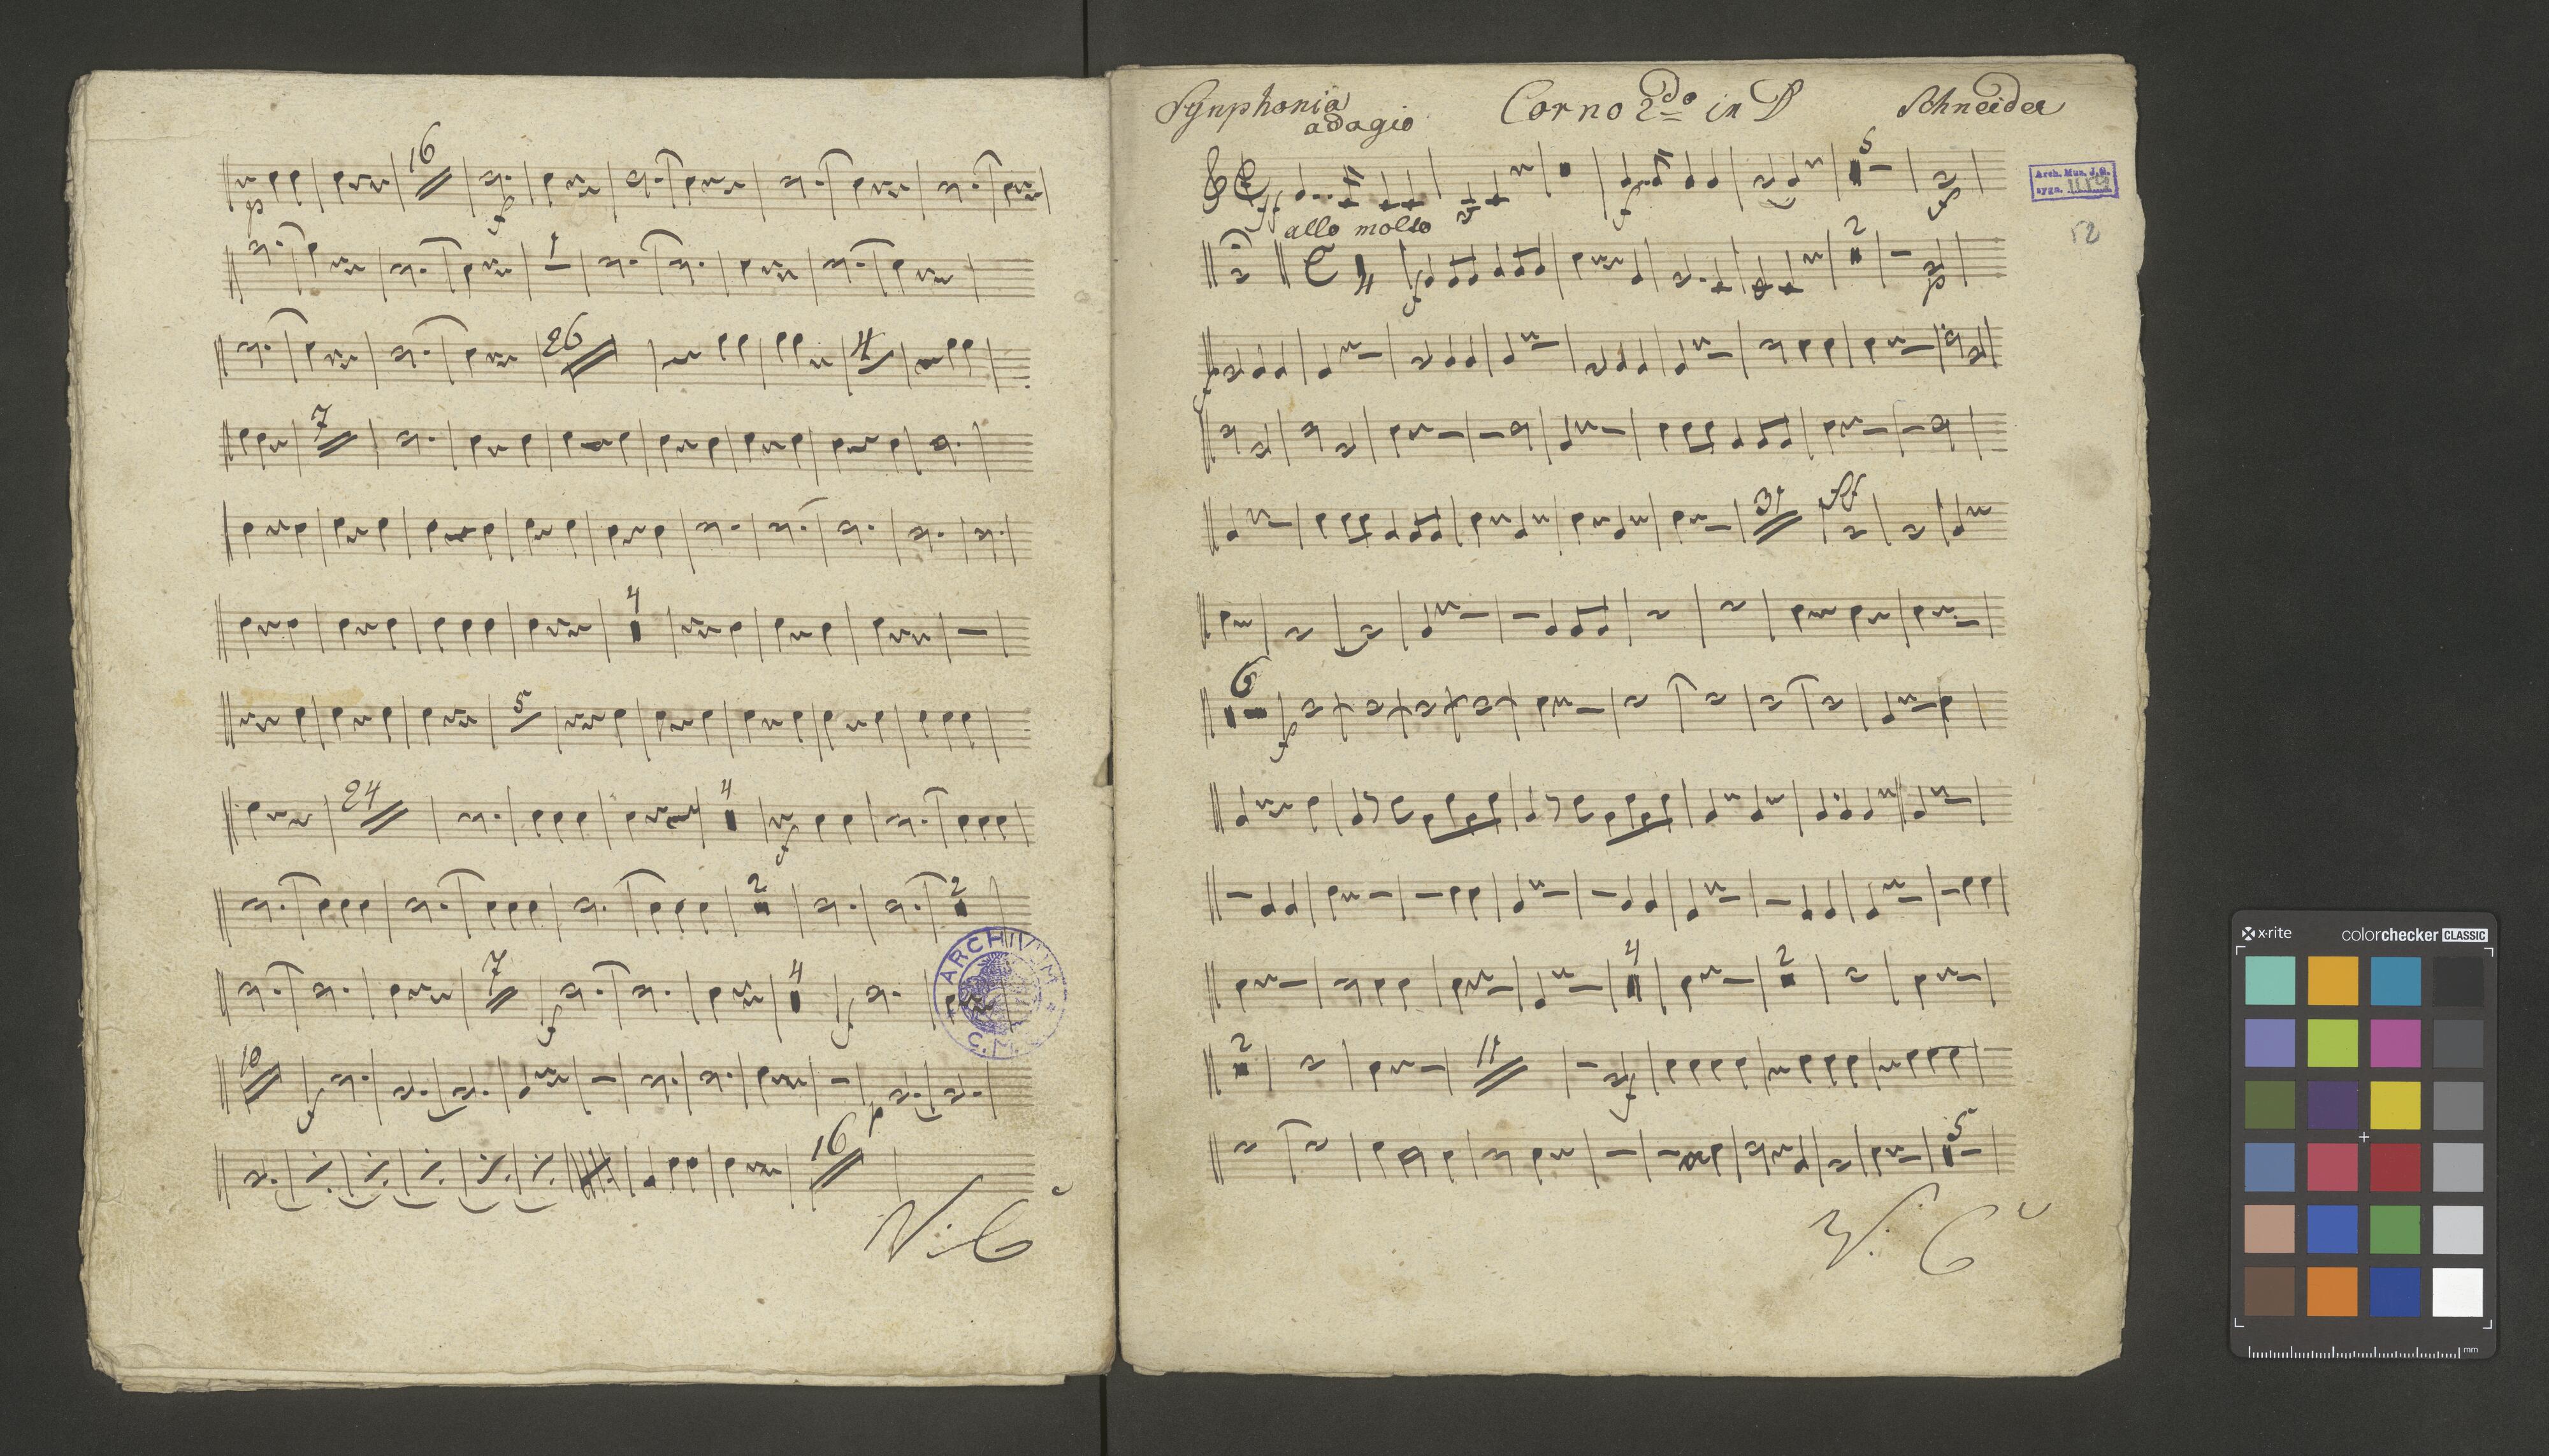 16
f
1
26
4
7
4
5
24
4
f
2
2
7
f
4
f
ARCHIVUM
C.M.
10
f
p
16
V: S
Synphonia
adagio
Corno 2do in D
Schneider
Arch. Mus. J. G.
sygn.
52
5
ff
f
allo molto
2
4
f
p
31
6
f
4
2
2
11
f
5
V: S
x-rite
colorchecker CLASSIC
mm